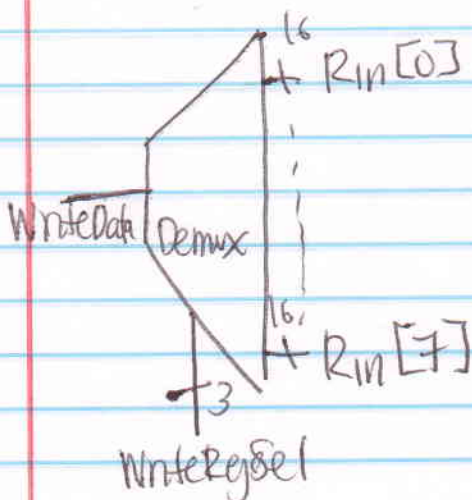 16
Rin[0]
WriteData
Demux
16
Rin[7]
3
WriteRegSel